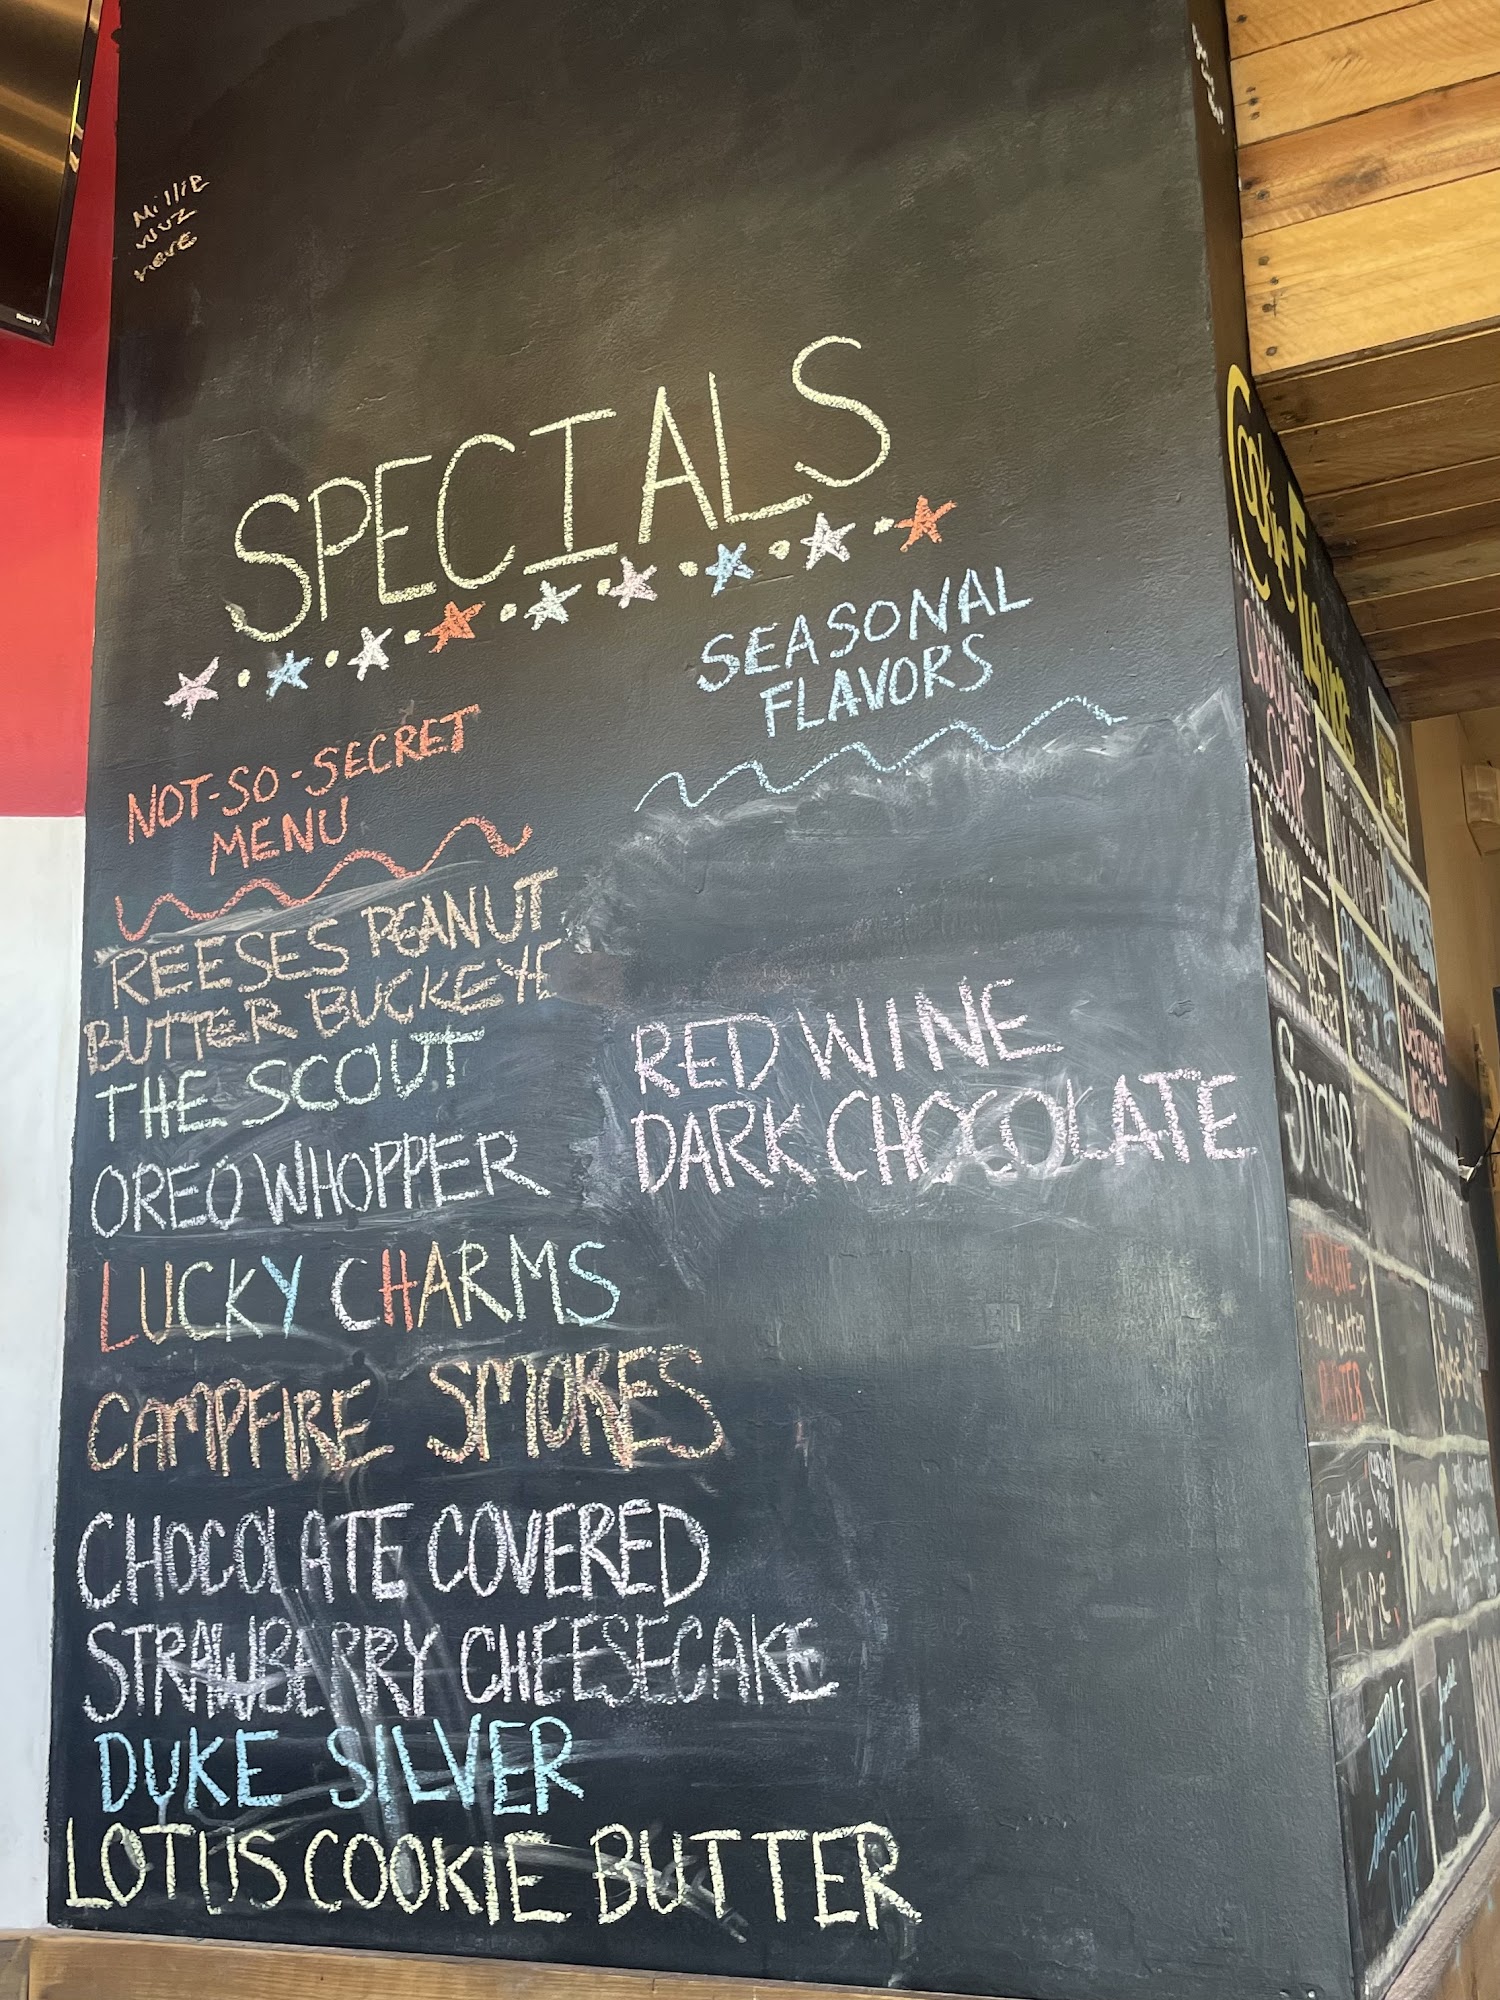 Roku TV
Millie
wuz
here
SPECIALS
NOT-SO-SECRET
MENU
REESES PEANUT
BUTTER BUCKEYE
THE SCOUT
OREO WHOPPER
LUCKY CHARMS
CAMPFIRE SMORES
CHOCOLATE COVERED
STRAWBERRY CHEESECAKE
DUKE SILVER
LOTUS COOKIE BUTTER
SEASONAL
FLAVORS
RED WINE
DARK CHOCOLATE
Cookie Flavors
CHOCOLATE
CHIP
Peanut
Butter
SUGAR
Cookie
TRIPLE
chocolate
CHIP